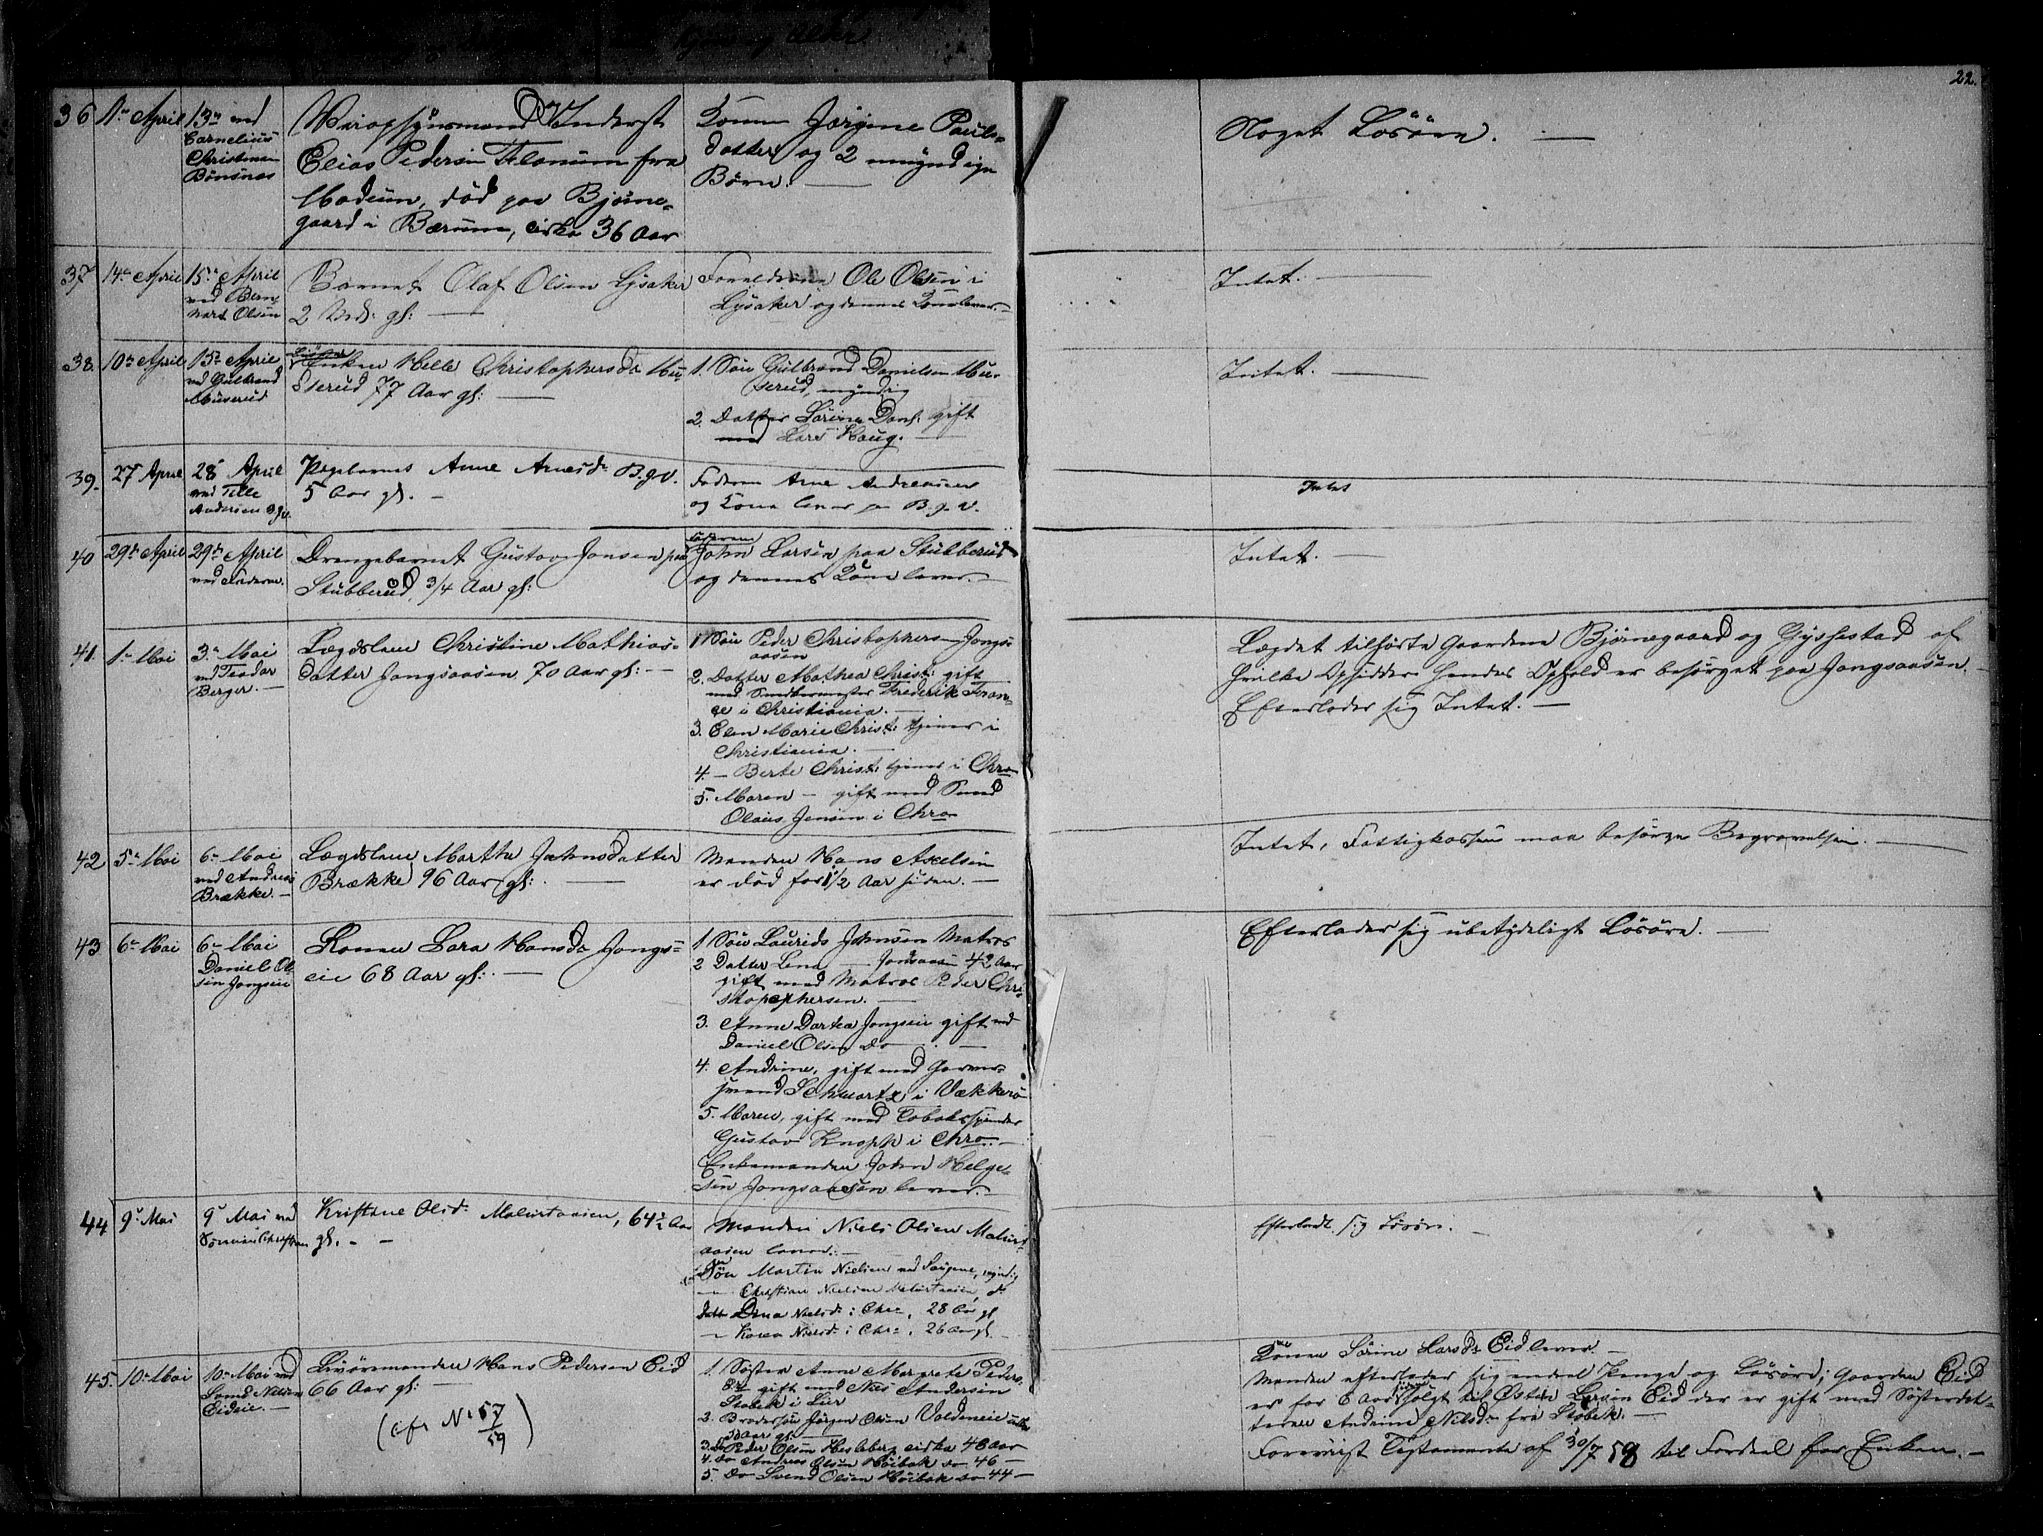 22.
36 1n April 13n ved
Cornelius
Christensen
Bønsnæs
Elias Pedersen fra
Modum, død paa Bjørne-
gaard i Bærum, cirka 36 Aar
Konen Jørgine Pauls-
datter og 2 umyndige
Børn. —
Noget Løsøre. —
37 14n April 15n April
ved Bern-
hart Olsen
Barnet Olaf Olsen Lysaker
2 gl: —
Forældrene Ole Olsen i
Lysaker og dennes Kone lever. —
Intet. —
38. 10n April 15n April
ved Gulbrand
Muserud
Enken Helle Christophersdr Mu-
serud 77 Aar gl: —
1. Søn Gulbrand Danielsen Mu-
serud, myndig
2. Datter Sørine Danl: gift
med Lars Haug. —
Intet. —
39. 27 April 28 April
ved Tille
Andersen
Pigebarnet Anne Arnesdr B.g.V.
5 Aar gl. -
Faderen Arne Andreassen
og Kone lever paa B.g.V.
Intet
40 29n April 29n April
ved Faderen.
Drengebarnet Gustav Jonsen paa
Stubberud, 3/4 Aar gl:
Faderen
John Larsen paa Stubberud
og dennes Kone lever. —
Intet. —
41. 1n Mai 3n Mai
ved Teodor
Berger. —
Lægdslem Christine Mathias-
datter Jongsaasen, 70 Aar gl: —
1 Søn Peder Christophersen Jongs-
aasen
2. Datter Mathea Christ: gift
med Frederik
i Christiania. —
3. Elen Marie Christ: tjener i
Christiania. —
4. — Berte Christ: tjener i Chra
5. Maren — gift med Smed
Olaus Jensen i Chra
Lægdet tilhørte Gaardene Bjørnegaard og Gyssestad af
hvilke Opsiddere hendes Ophold er besørget paa Jongsaasen.
Efterlader sig Intet. —
42 5n Mai 6n Mai
ved Andreas
Brække. —
Lægdslem Marthe Johnsdatter
Brække 96 Aar gl: —
Manden Hans Axelsen
er død for 1 1/2 Aar siden. —
Intet, Fattigkassen maa besørge Begravelsen. —
43 6n Mai 6n Mai
Daniel Ol-
sen Jongseie
Konen Lara Hansdr Jongs-
eie 68 Aar gl: —
1 Søn Laurids Johnsen Matros
2 Datter Lena — Jonsaasen 42 Aar
gift med Matros Peder Chri-
stopephersen. —
3. Anne Dortea Jongseie gift med
Daniel Olsen do —
4. Andrine, gift med Garver-
svend Schwartz i Vækkerø
5. Maren, gift med Tobaksspinder
Gustav Knopp i Chra. —
Enkemanden John Helge-
sen Jongsaasen lever. —
Efterlader sig ubetydeligt Løsøre. —
44 9n Mai 9n Mai ved
Kristiane Olsdr Malurtaasen, 64 1/2 Aar
gl. - -
Manden Niels Olsen Malurt-
aasen lever: —
Søn Martin Nielsen ved Saugene, myndig
— Christian Nielsen Malurtaasen, do
Dattr Dina Nielsdr i Chra, 28 Aar gl
— Karen Nielsdr i Chra, 26 Aar gl
Efterladt sig Løsøre.
45. 10n Mai 10n Mai ved
Nielsen
Eideie. —
Huusmanden Hans Pedersen Eid
66 Aar gl: —
(cfr No 57/59)
1. Søster Anne Margrete Peders-
dr gift med Nils Andersen
Stabek i Lier
2. Brodersøn Jørgen Olsen
Aar gl: —
3. Do Peder Olsen Hesleberg cirka 48 Aar
4. Do Andreas Olsen Høibak do 46 —
5. Do Svend Olsen Høibak do 44 —
Konen Sørine Larsdr Eid lever. —
Manden efterlader sig endel Penge og Løsøre; Gaarden Eid
er for 6 Aar siden solgt til Østen Larsen Eid der er gift med Søsterdat-
teren Andrine Nilsdr fra Stabek. —
Forøvrigt Testamente af 30/7 58 til Fordeel for Enken. —